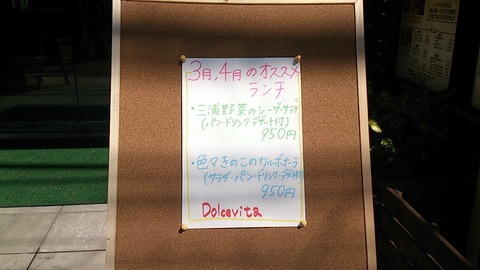 3月,4月のオススメ
ランチ
・三浦野菜のシーザーサラダ
(パン・ドリンク デザート付)
950円
・色々きのこのカルボナーラ
(サラダ・パン・ドリンク・デザート付)
950円
Dolcevita